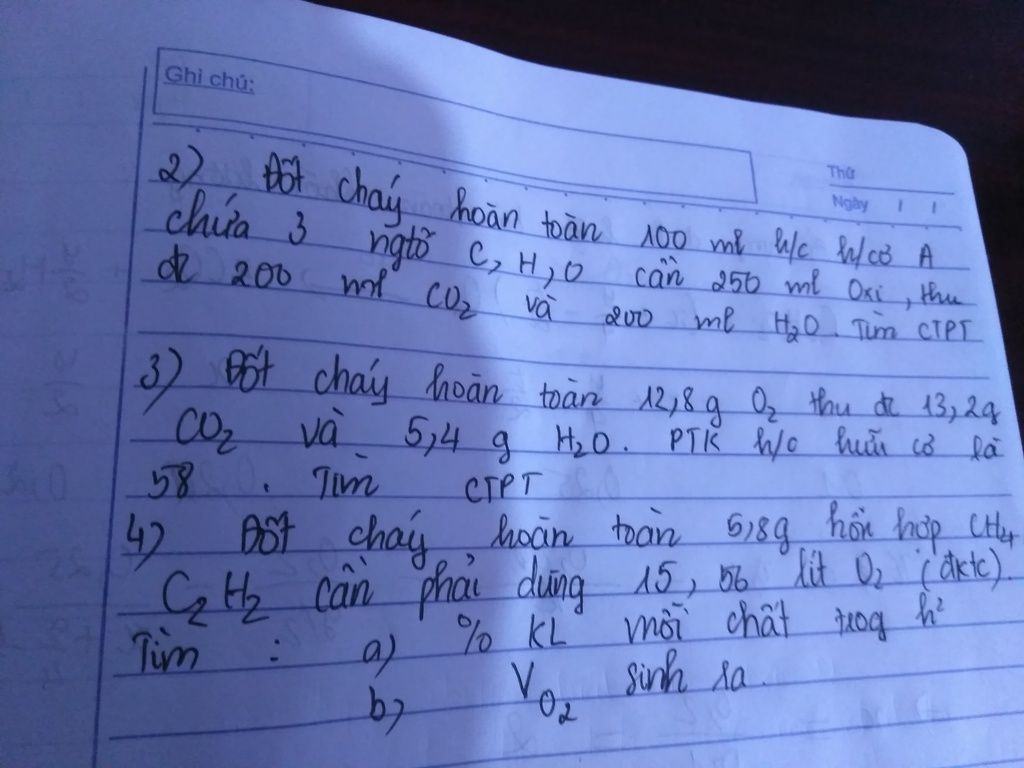 Ghi chú:
Thứ
Ngày / /
2) Đốt cháy hoàn toàn 100 ml h/c h/cơ A
chứa 3 ngtố C, H, O cần 250 ml Oxi, thu
đc 200 ml CO₂ và 200 ml H₂O. Tìm CTPT
3) Đốt cháy hoàn toàn 12,8g O₂ thu đc 13,2g
CO₂ và 5,4 g H₂O. PTK h/c hữu cơ là
58. Tìm CTPT
4) Đốt cháy hoàn toàn 5,8g hỗn hợp CH₄
C₂H₂ cần phải dùng 15,56 lít O₂ (đktc).
Tìm : a) % KL mỗi chất trog h²
b) V O₂ sinh ra.